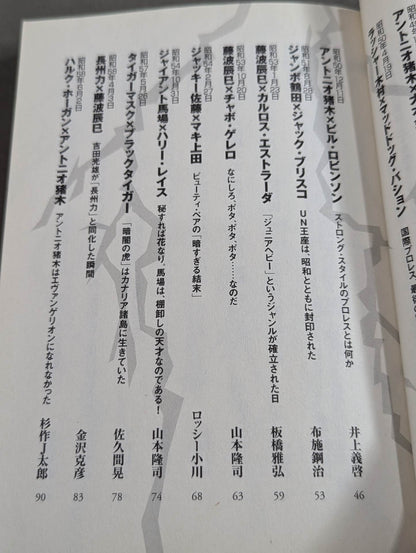 アントニオ猪木×
昭和50年4月19日
ラッシャー木村×マッドドッグ・バション
国際プロレス、最
昭和50年12月11日
アントニオ猪木×ビル・ロビンソン
ストロング・スタイルのプロレスとは何か
井上義啓
46
昭和51年8月28日
ジャンボ鶴田×ジャック・ブリスコ
UN王座は、昭和とともに封印された
布施鋼治
53
昭和53年1月23日
藤波辰巳×カルロス・エストラーダ
「ジュニアヘビー」というジャンルが確立された日
板橋雅弘
59
昭和53年10月20日
藤波辰巳×チャボ・ゲレロ
なにしろ、ボタ、ボタ、ボタ……なのだ
山本隆司
63
昭和54年2月27日
ジャッキー佐藤×マキ上田
ビューティ・ペアの「暗すぎる結末」
ロッシー小川
68
昭和54年10月31日
ジャイアント馬場×ハリー・レイス
秘すれば花なり、馬場は、棚卸しの天才なのである！
山本隆司
74
昭和57年5月26日
タイガーマスク×ブラックタイガー
「暗闇の虎」はカナリア諸島に生きていた
佐久間晃
78
昭和58年4月3日
長州力×藤波辰巳
吉田光雄が「長州力」と同化した瞬間
金沢克彦
83
昭和58年6月2日
ハルク・ホーガン×アントニオ猪木
アントニオ猪木はエヴァンゲリオンになれなかった
杉作J太郎
90